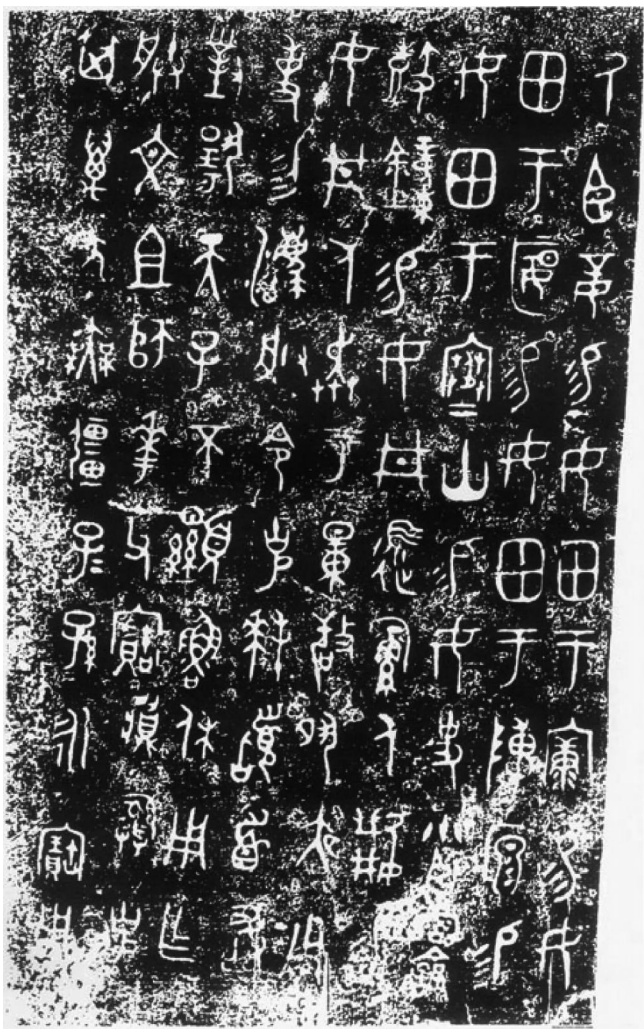 氒臣妾易女田于康易女
田于匽易女田于陴原易
女田于寒山易女史小臣霝龠
鼓鐘易女井遺𠭯人
女井人奔于量敬夙夜
用事勿灋朕令克拜𩒨首敢
對揚天子不顯魯休用乍
朕文且師華父寶𩰬彝克
其萬年無彊子子孫孫永寶用